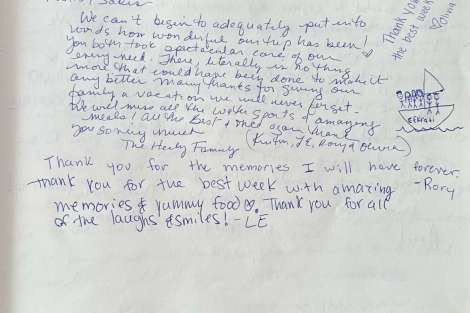 We can't begin to adequately put into
words how wonderful our trip has been!
You both took spectacular care of our
every need. There literally is nothing
more that could have been done to make it
any better. Many thanks for giving our
family a vacation we will never forget.
We will miss all the water sports & amazing
meals! All the best & once again thank
you so very much
The Family
Thank you for the memories I will have forever.
-Rory
Thank you for the best week with amazing
memories & yummy food. Thank you for all
of the laughs & smiles! -LE
Thank you
the best week
Olivia